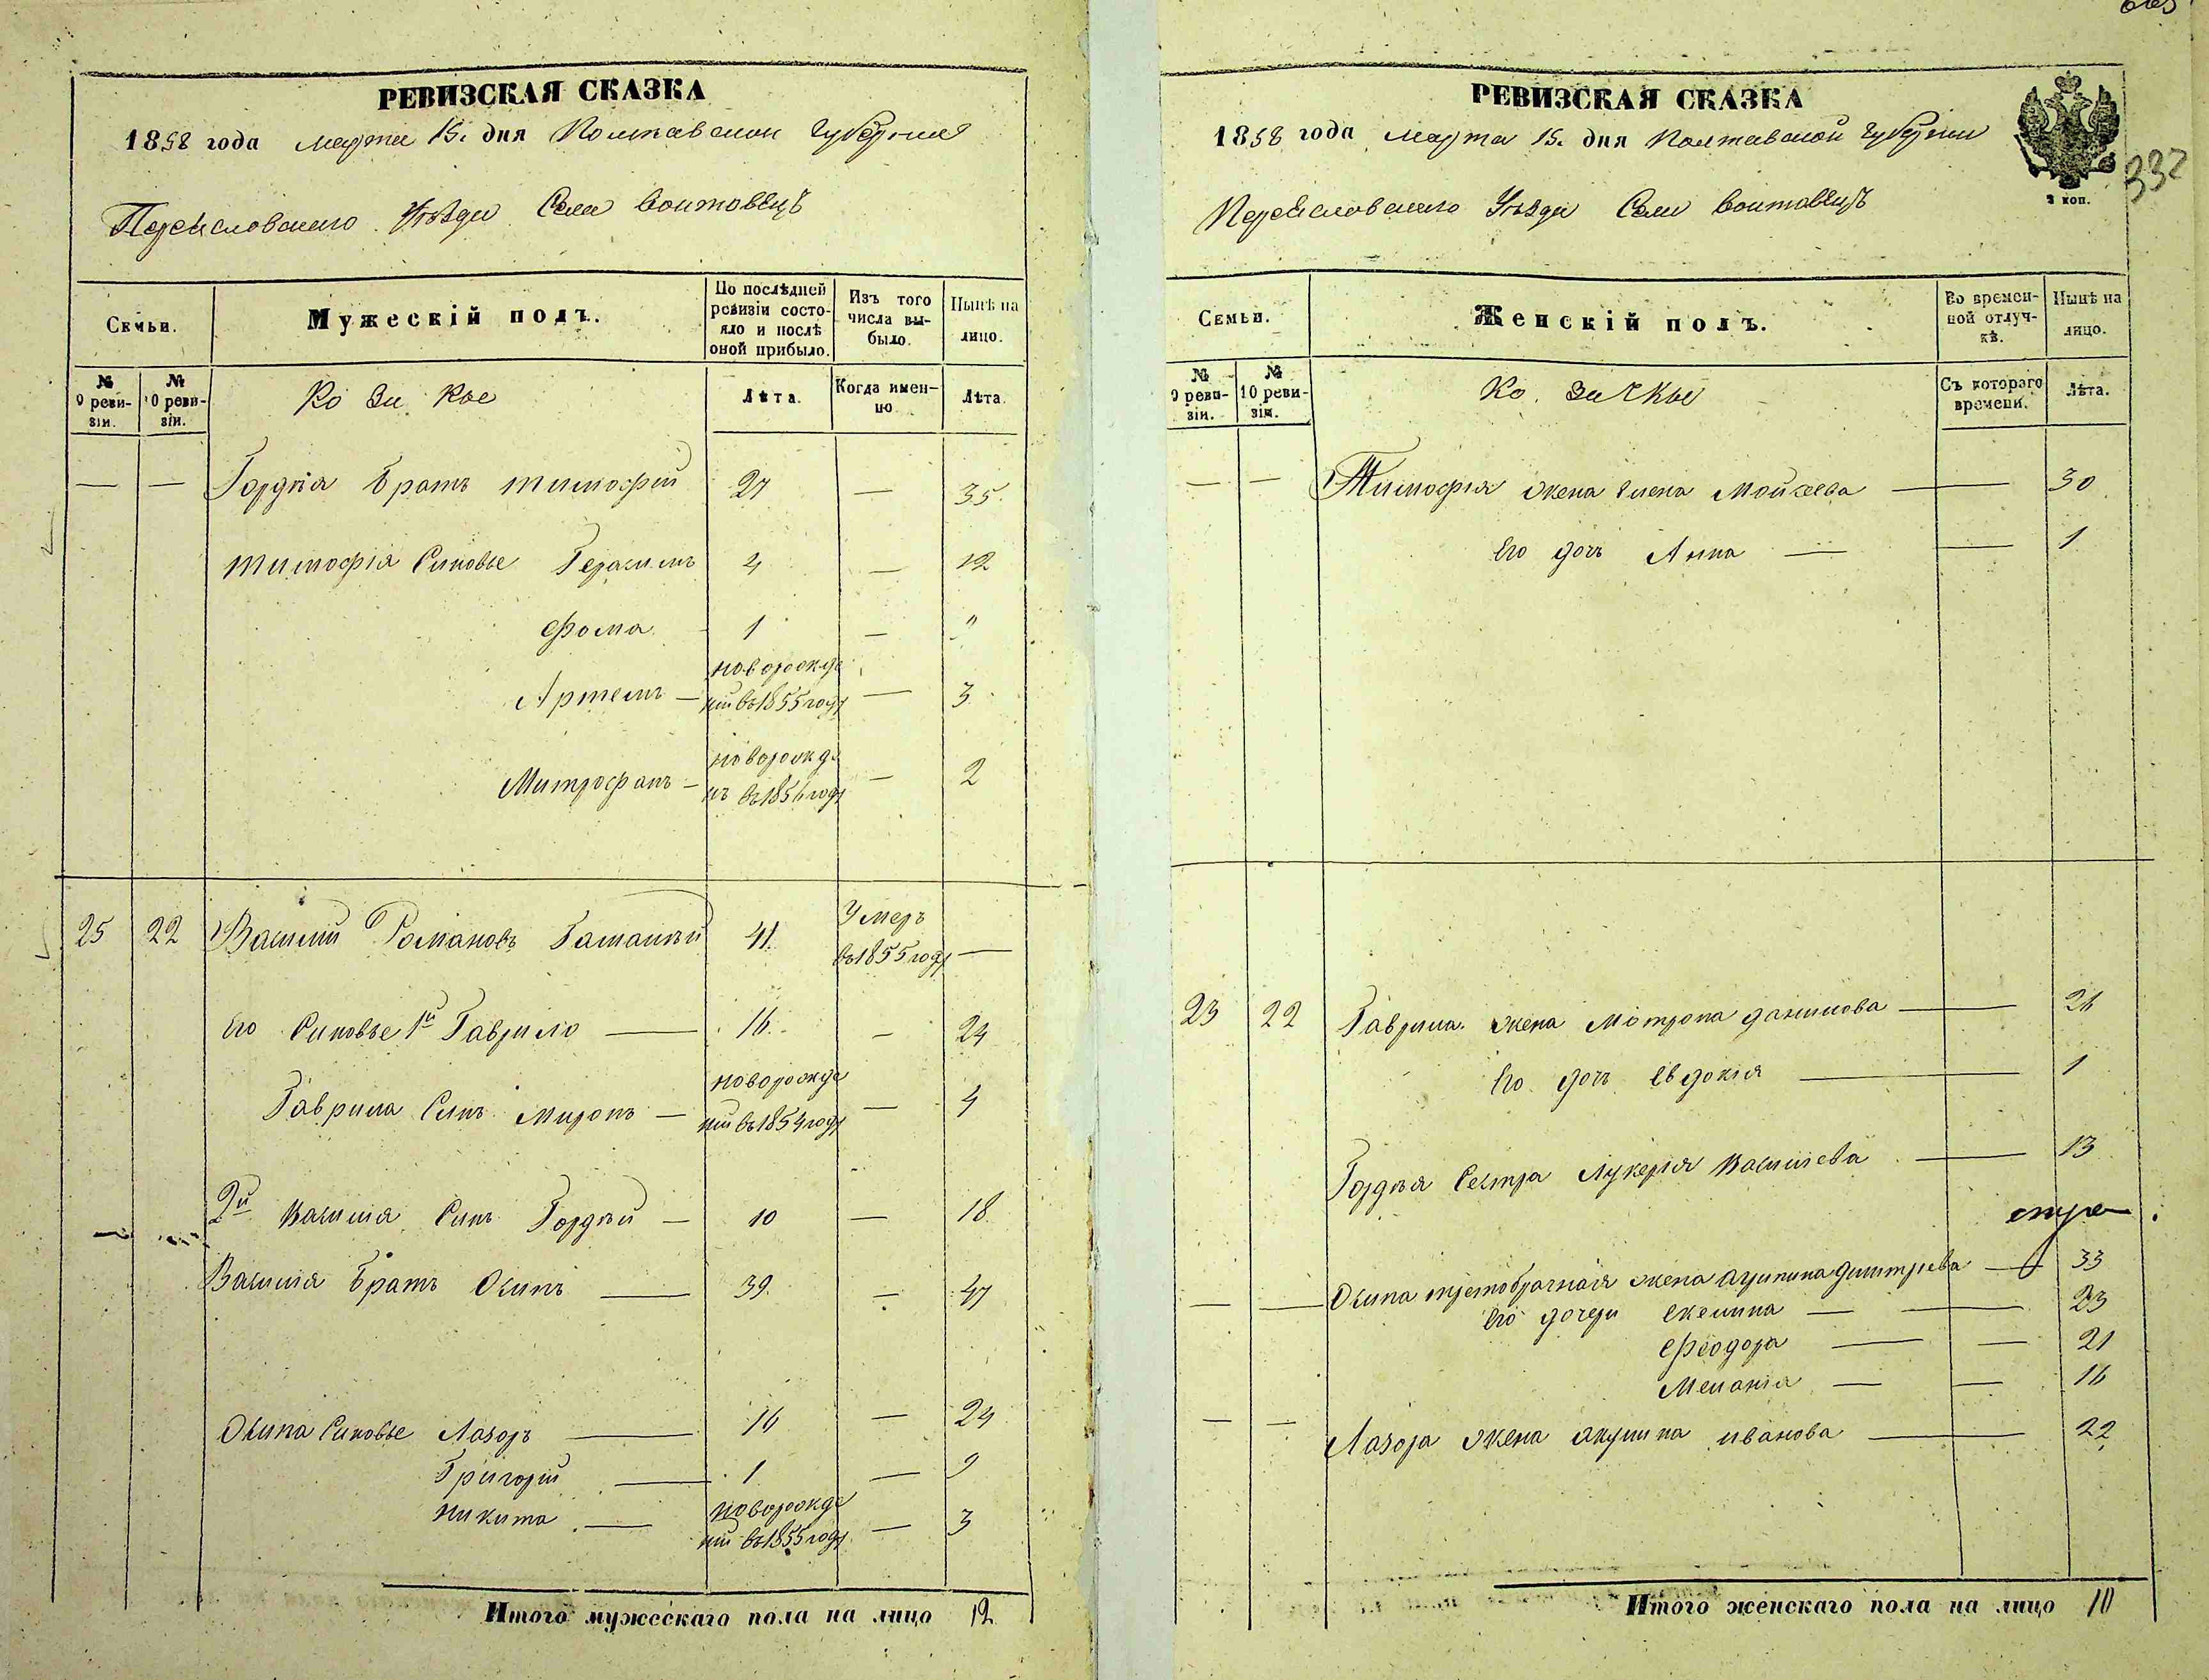 РЕВИЗСКАЯ СКАЗКА
1858 года марта 15. дня Полтавской губернии
Переясловского Уѣзда Села Воитовецъ
Семьи.
Мужескій полъ.
По послѣдней ревизіи состояло и послѣ оной прибыло.
Изъ того числа выбыло.
Нынѣ на лицо.
№ 9 ревизіи.
№ 10 ревизіи.
Козакое
Лѣта.
Когда именно
Лѣта.
— — Гордѣя братъ тимофій 27 — 35.
тимофія Синовье Герасимъ 4 — 12
Фома 1 — "
Артемъ — новорожде ній въ 1855 году — 3
Митрофанъ — новорожде нъ въ 1856 году — 2
25 22 Василій Романовъ 41. Умеръ въ 1855 году —
Его Синовье 1й Гаврило — 16. — 24
Гаврила Синъ Миронъ — новорожде ній въ 1854 году — 4
2й Василія Синъ Гордѣй — 10 — 18.
Василія братъ Осипъ — 39. — 47
Осипа Синовье Лазоръ — 16 — 24
Григорій — 1 — 9
Никита — новорожде ній въ 1855 году — 3
Итого мужескаго пола на лицо 12
РЕВИЗСКАЯ СКАЗКА
1858 года марта 15. дня Полтавской губернии
332
Переясловского Уѣзда Села Воитовецъ
2 коп.
Семьи.
Женскій полъ.
Во временной отлучкѣ.
Нынѣ на лицо.
№ 9 ревизіи.
№ 10 ревизіи.
Козачкы
Съ котораго времени.
Лѣта.
— — Тимофія жена Елена Мойсеева — 30
Его дочь Анна — — 1
23 22 Гаврила жена Мотрона данилова — 26
Его дочь Евдокія — 1
Гордѣя Сестра Лукерія Василіева — 13
— — Осипа третобрачная жена Агрипина Димитріева — 33
Его дочери — — 23
Феодора — — 21
Меланія — — 16
— — Лазора жена акулина иванова — 22
Итого женскаго пола на лицо 10